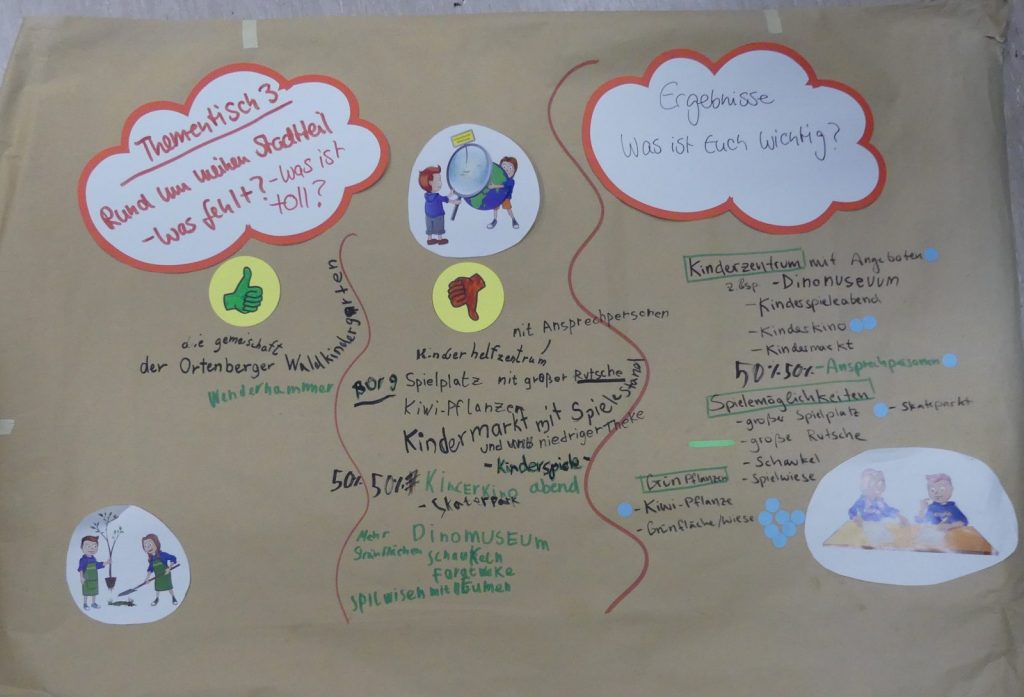 Thementisch 3
Rund um meinen Stadtteil
-Was fehlt? -Was ist
toll?
die gemeischaft
der Ortenberger Waldkindergarten
Wenderhammer
mit Ansprechpersonen
Kinderhelfzentrum
Borg Spielplatz mit großer Rutsche
Kiwi-Pflanzen
Kindermarkt mit Spiele Stand
und niedriger Theke
- Kinderspiele -
50% 50% Kinderkino abend
- Skaterpark
Mehr DINOMUSEUM
Grünflächen Schaukeln
spilwisen mit Bäumen
Ergebnisse
Was ist Euch wichtig?
Kinderzentrum mit Angeboten
z.bsp - Dinomuseuum
- Kinderspieleabend
- Kinderkino
- Kindermarkt
50%50%-Ansprachpersonen
Spielemöglichkeiten
- großer Spielplatz - Skatepark
- große Rutsche
- Schaukel
- Spielwiese
Grünpflanzen
- Kiwi-Pflanze
- Grünfläche/Wiese